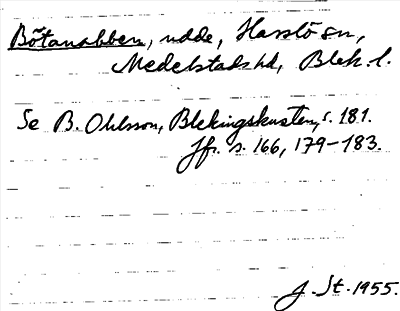 Båtanabben, udde, Hasslö sn,
Medelstads hd, Blek. l.
Se B. Ohlsson, Blekingskusten, s. 181.
Jfr s. 166, 179-183.
J. St. 1955.